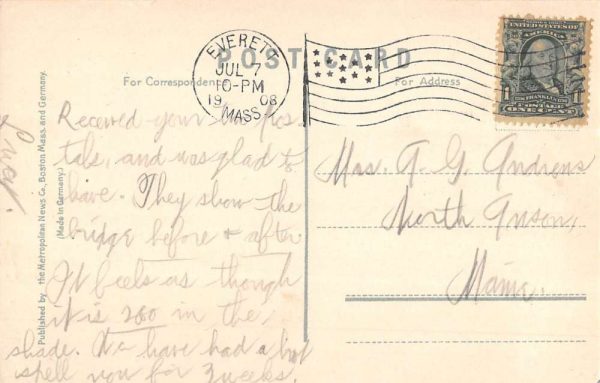 POST CARD
For Correspondence
For Address
EVERETT
JUL 7
10-PM
1908
MASS.
UNITED STATES OF AMERICA
FRANKLIN
1 1
ONE CENT
Published by the Metropolitan News Co., Boston Mass. and Germany.
(Made in Germany.)
Received your two pos
tals, and was glad to
have. They show the
bridge before & after
It feels as though
it is 200 in the
shade. We have had a hot
spell now for 3 weeks.
Mrs. A. G. Andrews
North Anson,
Maine.